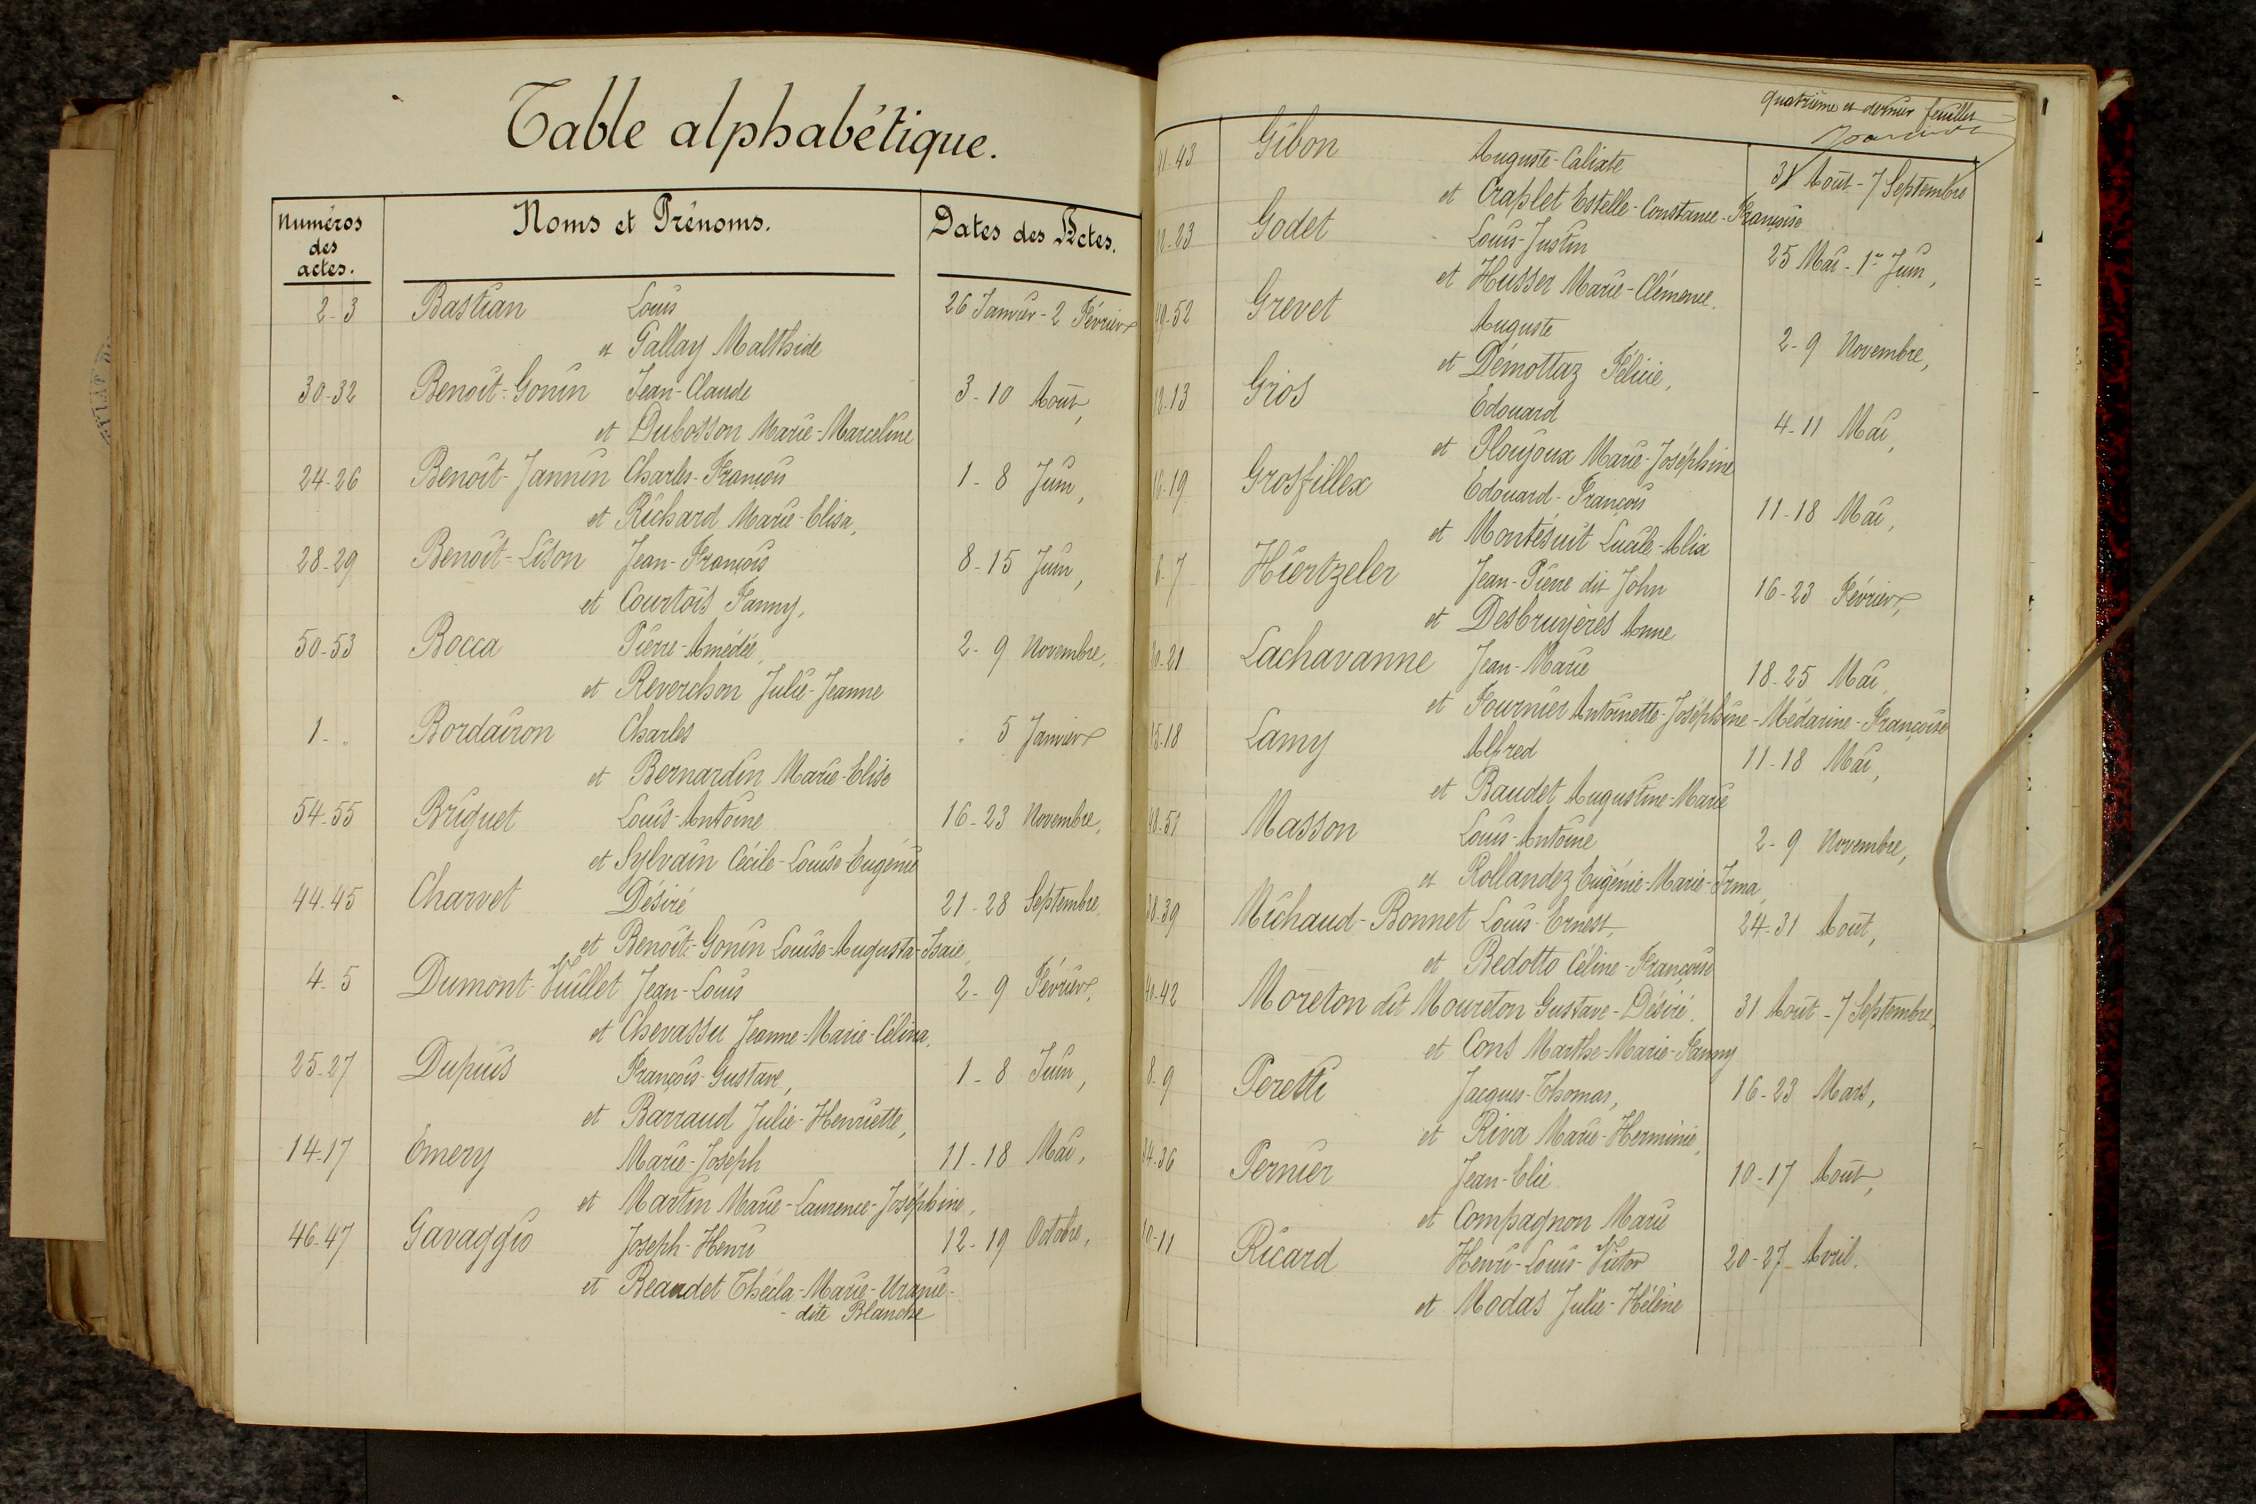 Table alphabétique.
Numéros des actes. Noms et Prénoms. Dates des Actes.
2-3 Bastian Louis 26 Janvier - 2 Février
et Gallay Malthide
30-32 Benoit-Gonin Jean-Claude 3-10 Août,
et Dubosson Marie-Marceline
24-26 Benoit-Jannin Charles-François 1-8 Juin,
et Richard Marie-Elisa,
28-29 Benoit-Lison Jean-François 8-15 Juin,
et Courtois Fanny,
50-53 Bocca Pierre-Amédée, 2-9 Novembre,
et Reverchon Julie-Jeanne
1 - . Bordairon Charles . 5 Janvier
et Bernardin Marie-Elise
54-55 Briguet Louis-Antoine 16-23 Novembre,
et Sylvain Cécile-Louise-Eugénie
44-45 Charvet Désiré 21-28 Septembre,
et Benoit-Gonin Louise-Augusta-Isaïe,
4-5 Dumont-Vuillet Jean-Louis 2-9 Février,
et Chevassu Jeanne-Marie-Célina,
25-27 Dupuis François-Gustave, 1-8 Juin,
et Barraud Julie-Henriette,
14-17 Emery Marie-Joseph 11-18 Mai,
et Martin Marie-Laurence-Joséphine,
46-47 Gavaggio Joseph-Henri 12-19 Octobre,
et Beaudet Thécla-Marie-Uranie-
- dite Blanche
Quatrième et dernier feuillet
41-43 Gibon Auguste-Calixte 31 Août - 7 Septembre
et Craplet Estelle-Constance-Françoise
23 Godet Louis-Justin 25 Mai - 1er Juin,
et Husser Marie-Clémence.
52 Grevet Auguste 2-9 Novembre,
et Démottaz Félicie,
12-13 Gros Edouard 4-11 Mai,
et Ploujoux Marie-Joséphine
16-19 Grosfillex Edouard-François 11-18 Mai,
et Montésuit Lucile-Alix
6-7 Hiertzeler Jean-Pierre dit John 16-23 Février,
et Desbruyères Anne
20-21 Lachavanne Jean-Marie 18-25 Mai,
et Fournier Antoinette-Joséphine-Médarine-Françoise
15-18 Lamy Alfred 11-18 Mai,
et Baudet Augustine-Marie
48-51 Masson Louis-Antoine 2-9 Novembre,
et Rollandez Eugénie-Marie-Irma,
38-39 Michaud-Bonnet Louis-Ernest, 24-31 Août,
et Bedotto Céline-Françoise
40-42 Moreton dit Moureton Gustave-Désiré. 31 Août - 7 Septembre,
et Cons Marthe-Marie-Fanny
8-9 Peretti Jacques-Thomas, 16-23 Mars,
et Riva Marie-Herminie,
34-36 Pernier Jean-Elie 10-17 Août,
et Compagnon Marie
10-11 Ricard Henri-Louis-Victor 20-27 Avril.
et Modas Julie-Hélène